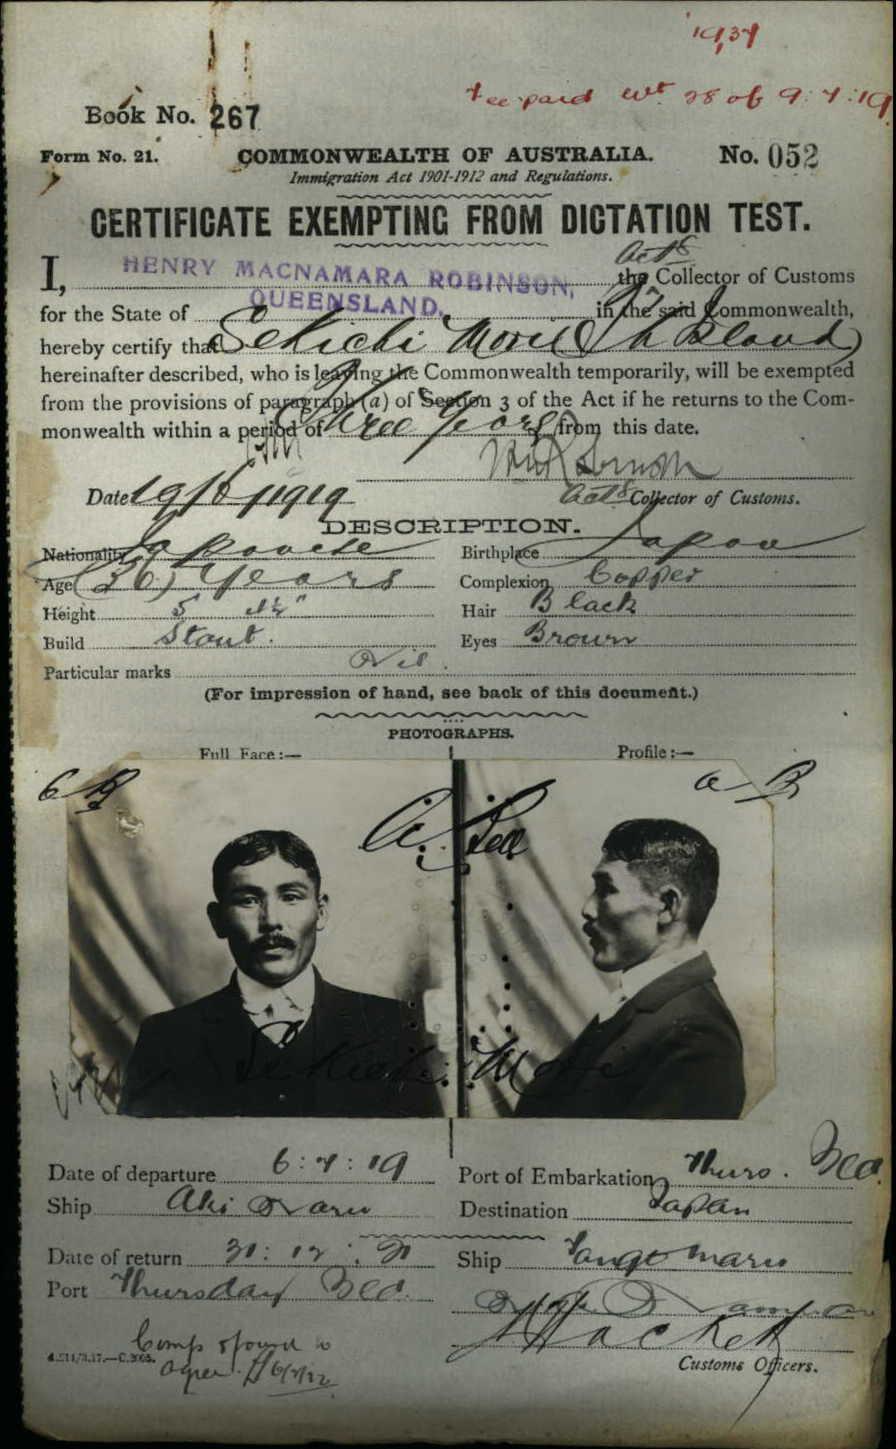 1934
Fee paid 28 of 9:7:19
Book No. 267
Form No. 21. COMMONWEALTH OF AUSTRALIA. No. 052
Immigration Act 1901-1912 and Regulations.
CERTIFICATE EXEMPTING FROM DICTATION TEST.
Actg
I, HENRY MACNAMARA ROBINSON, the Collector of Customs
for the State of QUEENSLAND, in the said Commonwealth,
hereby certify that Sekichi Mori (Th Island)
hereinafter described, who is leaving the Commonwealth temporarily, will be exempted
from the provisions of paragraph (a) of Section 3 of the Act if he returns to the Com-
monwealth within a period of Three Years from this date.
Date 19/6/1919 Actg Collector of Customs.
DESCRIPTION.
Nationality Japanese Birthplace Japan
Age (36) Years Complexion Copper
Height 5' Hair Black
Build Stout. Eyes Brown
Particular marks Nil.
(For impression of hand, see back of this document.)
PHOTOGRAPHS.
Full Face:— Profile:—
Sekichi Mori
Date of departure 6:7:19 Port of Embarkation Thurs. Isld.
Ship Aki Maru Destination Japan
Date of return 31:12:21 Ship Tango Maru
Port Thursday Isld.
Hackett
Customs Officers.
Comps found to
agree. 6/2/22